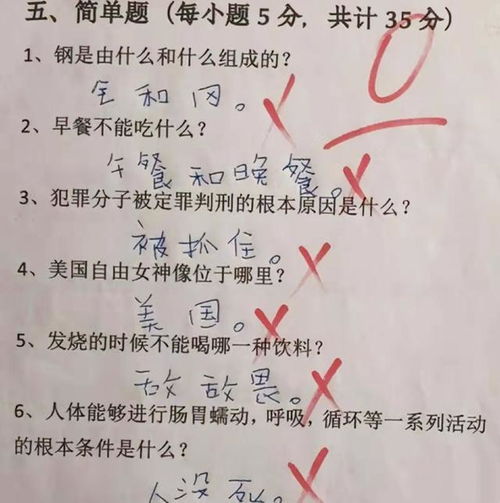 五、简单题（每小题 5 分，共计 35 分）
0
1、钢是由什么和什么组成的？
全和冈。
2、早餐不能吃什么？
午餐和晚餐。
3、犯罪分子被定罪判刑的根本原因是什么？
被抓住。
4、美国自由女神像位于哪里？
美国。
5、发烧的时候不能喝哪一种饮料？
敌敌畏。
6、人体能够进行肠胃蠕动，呼吸，循环等一系列活动
的根本条件是什么？
人没死。